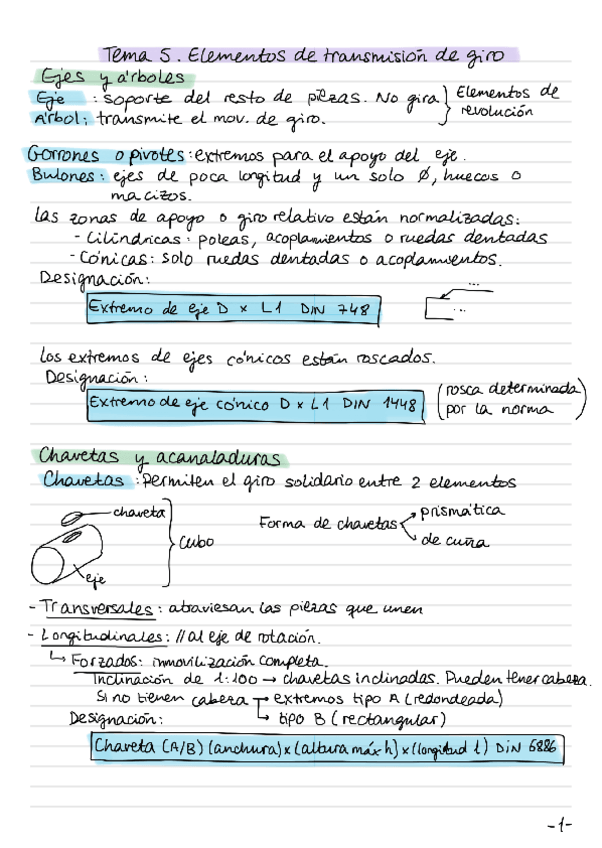 Tema 5. Elementos de transmisión de giro
Ejes y árboles
Eje : soporte del resto de piezas. No gira } Elementos de revolución
Árbol: transmite el mov. de giro.
Gorrones o pivotes: extremos para el apoyo del eje.
Bulones: ejes de poca longitud y un solo Ø, huecos o
macizos.
Las zonas de apoyo o giro relativo están normalizadas:
- Cilíndricas: poleas, acoplamientos o ruedas dentadas
- Cónicas: solo ruedas dentadas o acoplamientos.
Designación:
Extremo de eje D x L1 DIN 748
...
...
Los extremos de ejes cónicos están roscados.
Designación:
Extremo de eje cónico D x L1 DIN 1448
(rosca determinada
por la norma)
Chavetas y acanaladuras
Chavetas: Permiten el giro solidario entre 2 elementos
chaveta
eje
Cubo
Forma de chavetas
prismática
de cuña
- Transversales: atraviesan las piezas que unen
- Longitudinales: // al eje de rotación.
↳ Forzados: inmovilización completa.
Inclinación de 1:100 → chavetas inclinadas. Pueden tener cabeza.
Si no tienen cabeza → extremos tipo A (redondeada)
↳ tipo B (rectangular)
Designación:
Chaveta (A/B) (anchura) x (altura máx h) x (longitud l) DIN 6886
-1-